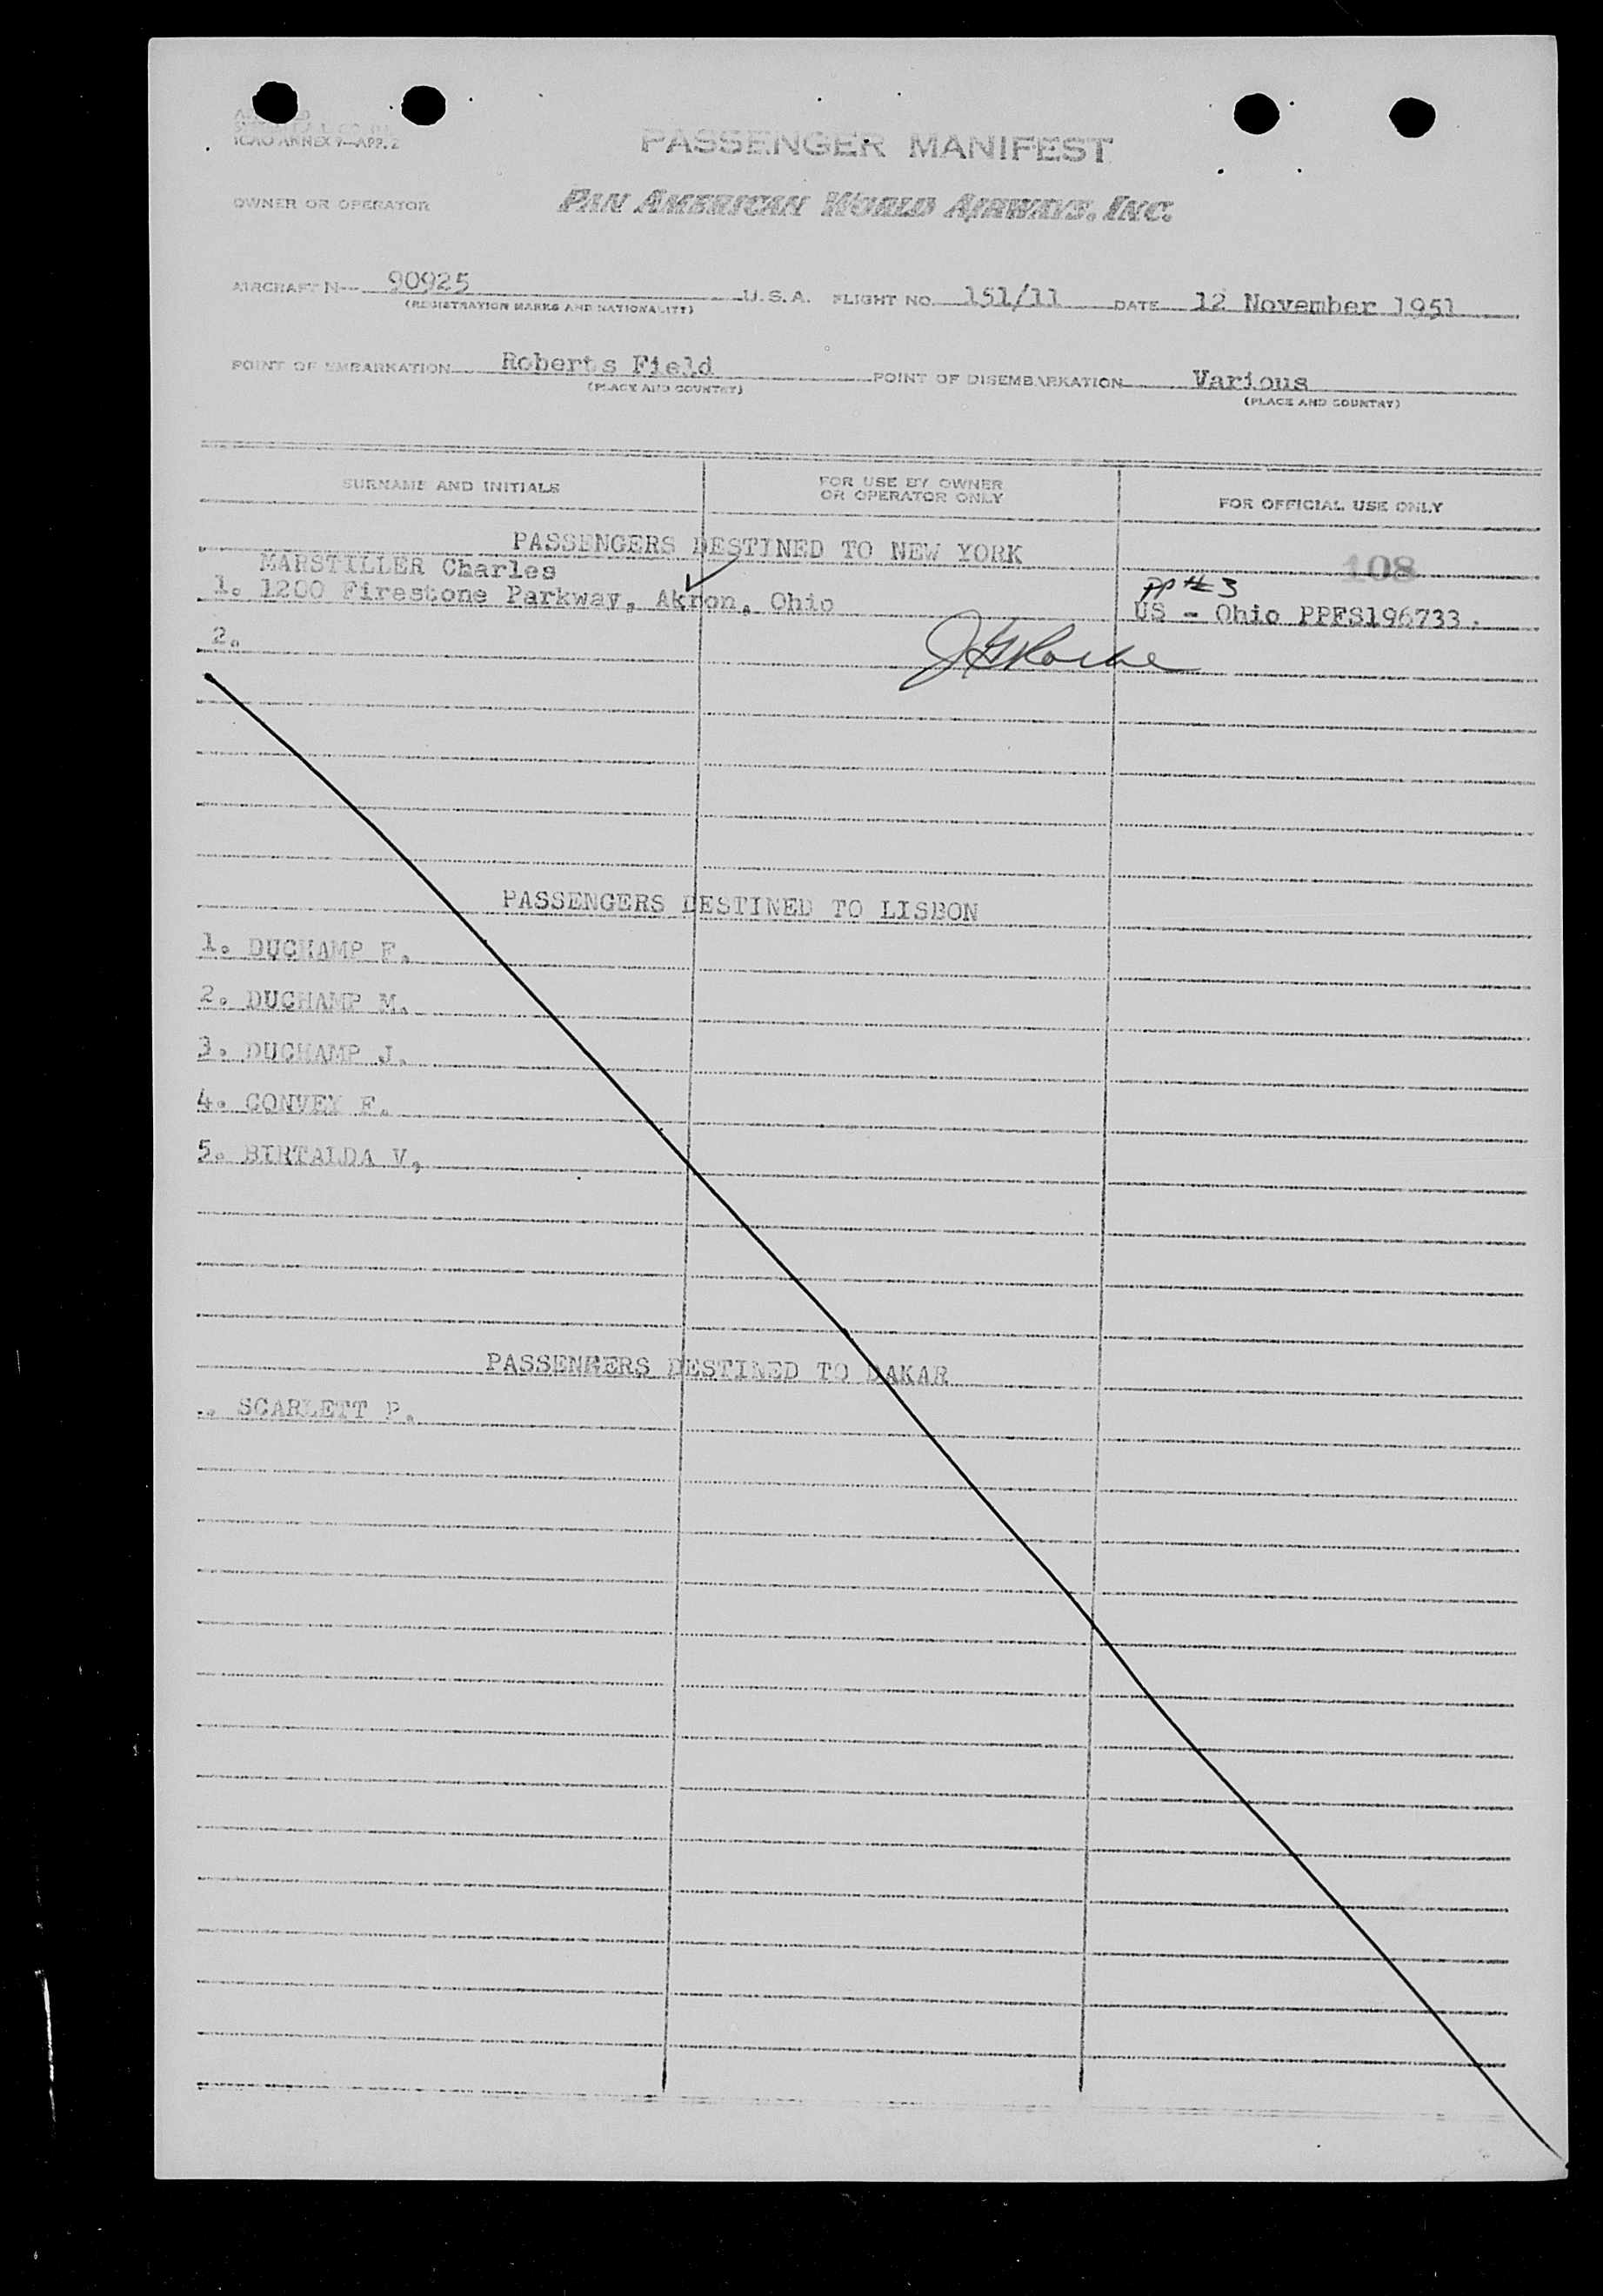 ICAO ANNEX 9—APP. 2
PASSENGER MANIFEST
OWNER OR OPERATOR
PAN AMERICAN WORLD AIRWAYS, INC.
AIRCRAFT N— 90925 U.S.A. FLIGHT NO. 151/11 DATE 12 November 1951
(REGISTRATION MARKS AND NATIONALITY)
POINT OF EMBARKATION Roberts Field POINT OF DISEMBARKATION Various
(PLACE AND COUNTRY) (PLACE AND COUNTRY)
SURNAME AND INITIALS FOR USE BY OWNER OR OPERATOR ONLY FOR OFFICIAL USE ONLY
PASSENGERS DESTINED TO NEW YORK
108
MARSTILLER Charles
PP # 3
1. 1200 Firestone Parkway, Akron, Ohio US - Ohio PPFS196733.
2.
PASSENGERS DESTINED TO LISBON
1. DUCHAMP F.
2. DUCHAMP M.
3. DUCHAMP J.
4. CONVEY F.
5. BIRTALDA V,
PASSENRERS DESTINED TO DAKAR
. SCARLETT P.